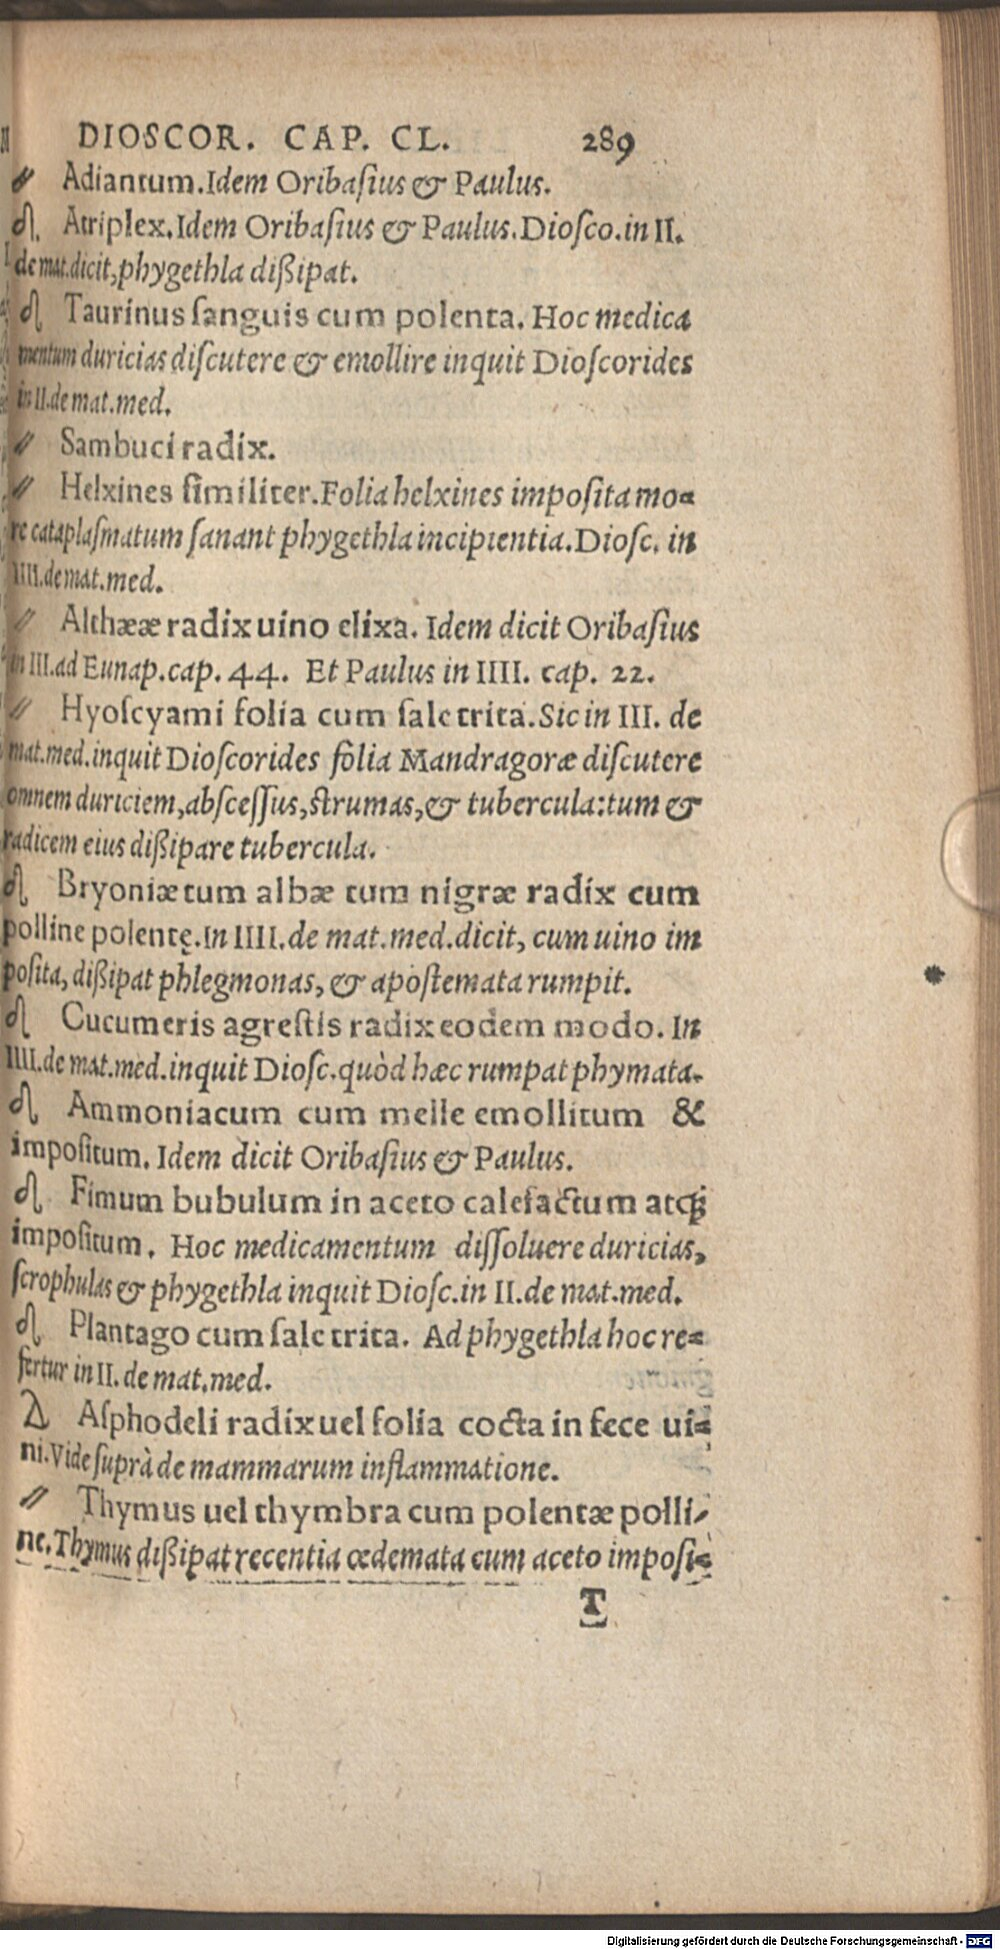 DIOSCOR. CAP. CL. 289
〃 Adiantum. Idem Oribaſius & Paulus.
♌. Atriplex. Idem Oribaſius & Paulus. Dioſco. in II.
de mat. dicit, phygethla dißipat.
♌ Taurinus ſanguis cum polenta. Hoc medica
mentum duricias diſcutere & emollire inquit Dioſcorides
in II. de mat. med.
〃 Sambuci radix.
〃 Helxines ſimiliter. Folia helxines impoſita mo-
re cataplaſmatum ſanant phygethla incipientia. Dioſc. in
IIII. de mat. med.
〃 Althææ radix uino elixa. Idem dicit Oribaſius
in III. ad Eunap. cap. 44. Et Paulus in IIII. cap. 22.
〃 Hyoſcyami folia cum ſale trita. Sic in III. de
mat. med. inquit Dioſcorides folia Mandragoræ diſcutere
omnem duriciem, abſceſſus, ſtrumas, & tubercula: tum &
radicem eius dißipare tubercula.
♌ Bryoniæ tum albæ tum nigræ radix cum
polline polentę. In IIII. de mat. med. dicit, cum uino im
poſita, dißipat phlegmonas, & apoſtemata rumpit.
♌ Cucumeris agreſtis radix eodem modo. In
IIII. de mat. med. inquit Dioſc. quòd hæc rumpat phymata.
♌ Ammoniacum cum melle emollitum &
impoſitum. Idem dicit Oribaſius & Paulus.
♌ Fimum bubulum in aceto calefactum atq́;
impoſitum. Hoc medicamentum diſſoluere duricias,
ſcrophulas & phygethla inquit Dioſc. in II. de mat. med.
♌ Plantago cum ſale trita. Ad phygethla hoc re-
fertur in II. de mat. med.
Δ Aſphodeli radix uel folia cocta in fece ui-
ni. Vide ſuprà de mammarum inflammatione.
〃 Thymus uel thymbra cum polentæ polli-
ne. Thymus dißipat recentia œdemata cum aceto impoſi-
T
Digitalisierung gefördert durch die Deutsche Forschungsgemeinschaft - DFG